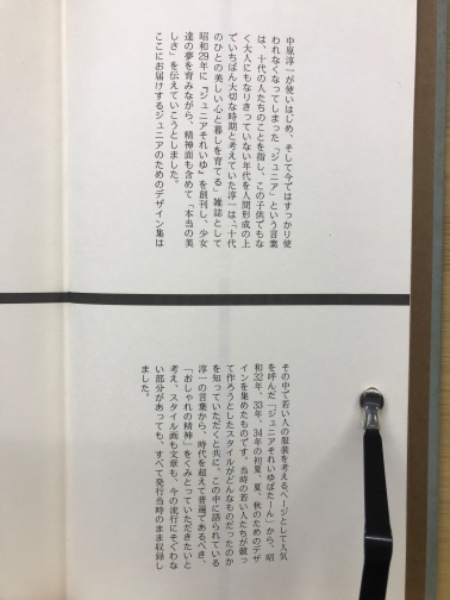 中原淳一が使いはじめ、そして今ではすっかり使
われなくなってしまった「ジュニア」という言葉
は、十代の人たちのことを指し、この子供でもな
く大人にもなりきっていない年代を人間形成の上
でいちばん大切な時期と考えていた淳一は、「十代
のひとの美しい心と暮しを育てる」雑誌として
昭和29年に『ジュニアそれいゆ』を創刊し、少女
達の夢を育みながら、精神面も含めて「本当の美
しさ」を伝えていこうとしました。
ここにお届けするジュニアのためのデザイン集は
その中で若い人の服装を考えるページとして人気
を呼んだ「ジュニアそれいゆぱたーん」から、昭
和32年、33年、34年の初夏、夏、秋のためのデザ
インを集めたものです。当時の若い人たちが競っ
て作ろうとしたスタイルがどんなものだったのか
を知っていただくと共に、この中に語られている
淳一の言葉から、時代を超えて普遍であるべき、
「おしゃれの精神」をくみとっていただきたいと
考え、スタイル画も文章も、今の流行にそぐわな
い部分があっても、すべて発行当時のまま収録し
ました。